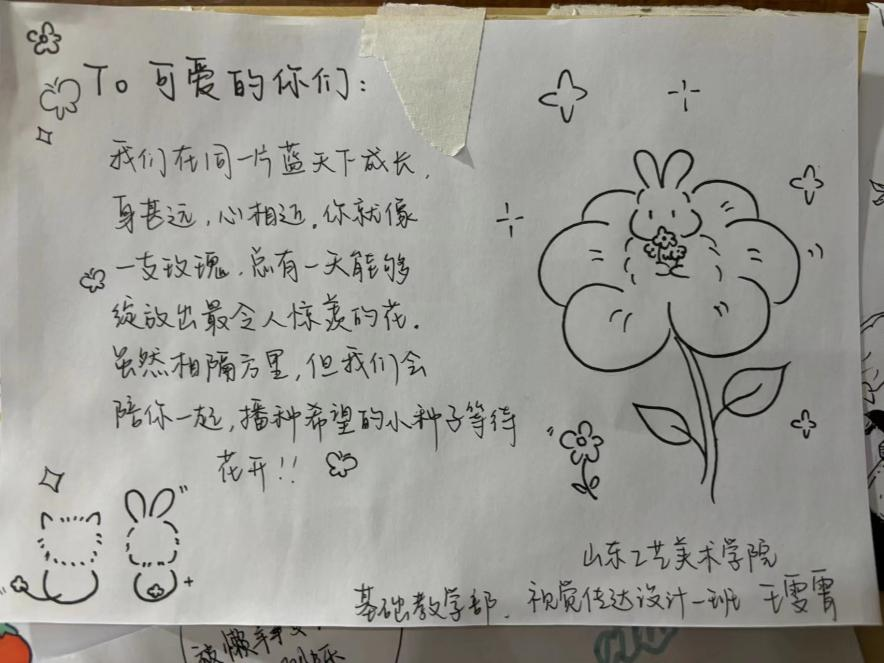 To 可爱的你们:
我们在同一片蓝天下成长,
身甚远,心相近.你就像
一支玫瑰.总有一天能够
绽放出最令人惊羡的花.
虽然相隔万里,但我们会
陪你一起,播种希望的小种子等待
花开!!
山东工艺美术学院
基础教学部. 视觉传达设计一班 王雯霄
被懒羊羊